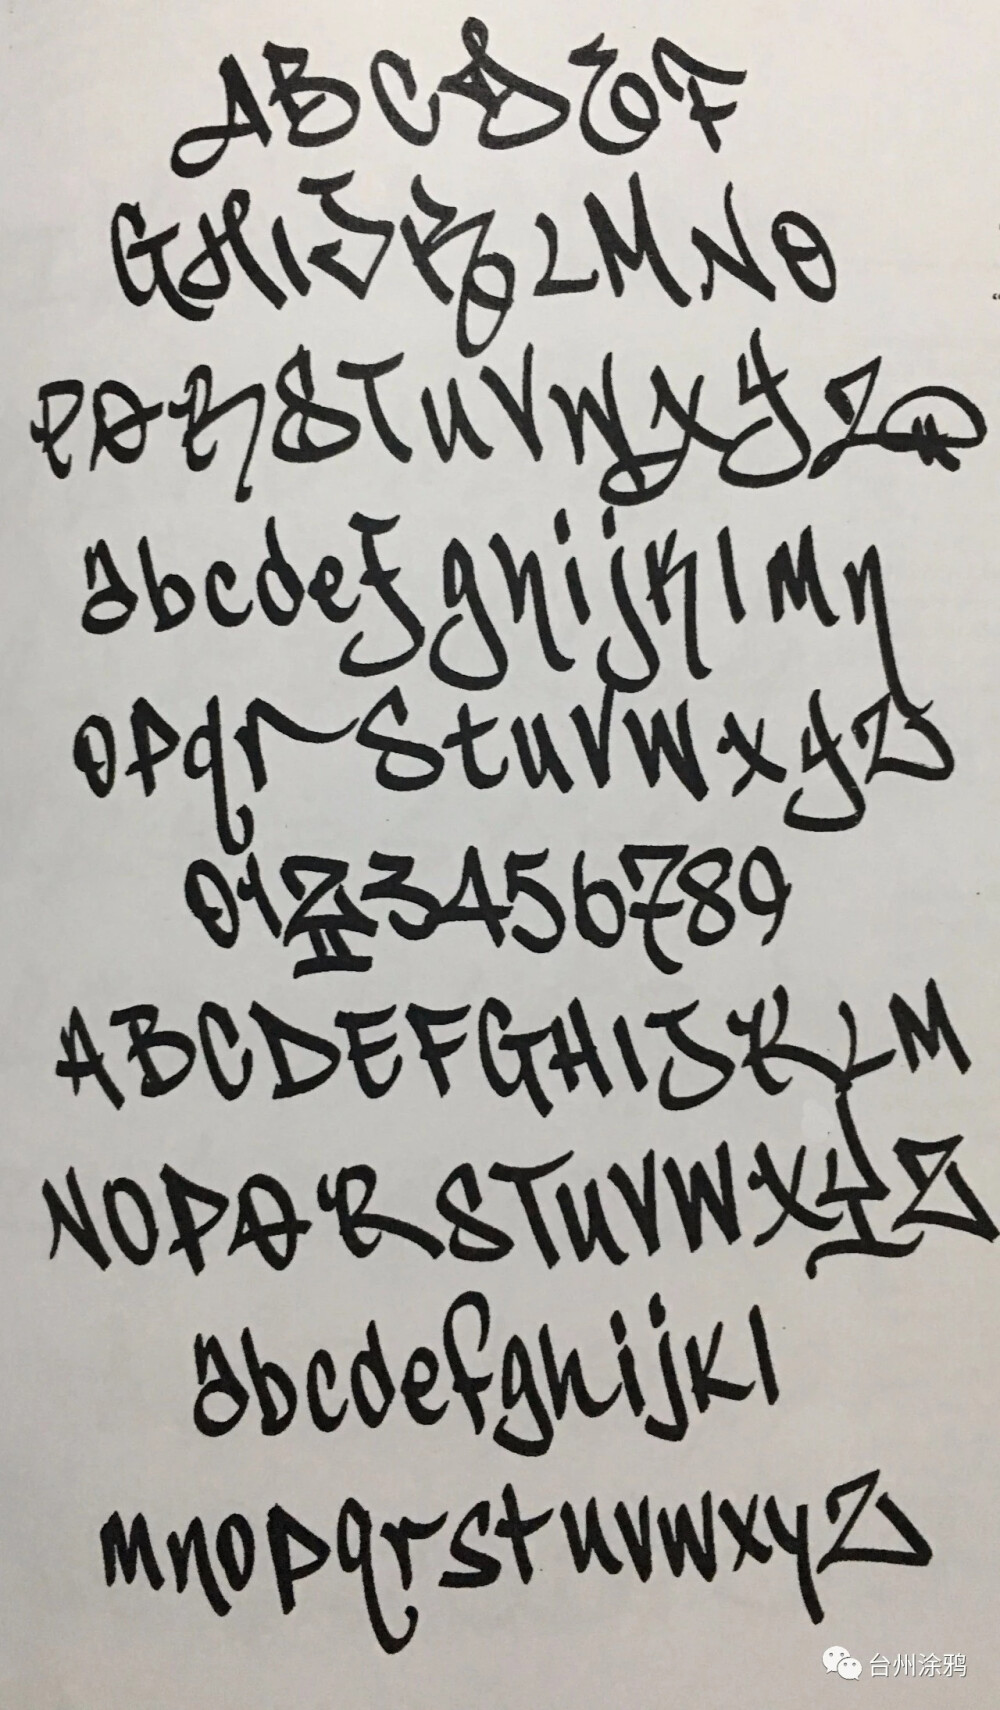 ABCDEF
GHIJKLMNO
PQRSTUVWXYZ
abcdefghijklmn
opqrstuvwxyz
0123456789
ABCDEFGHIJKLM
NOPQRSTUVWXYZ
abcdefghijkl
mnopqrstuvwxyz
台州涂鸦